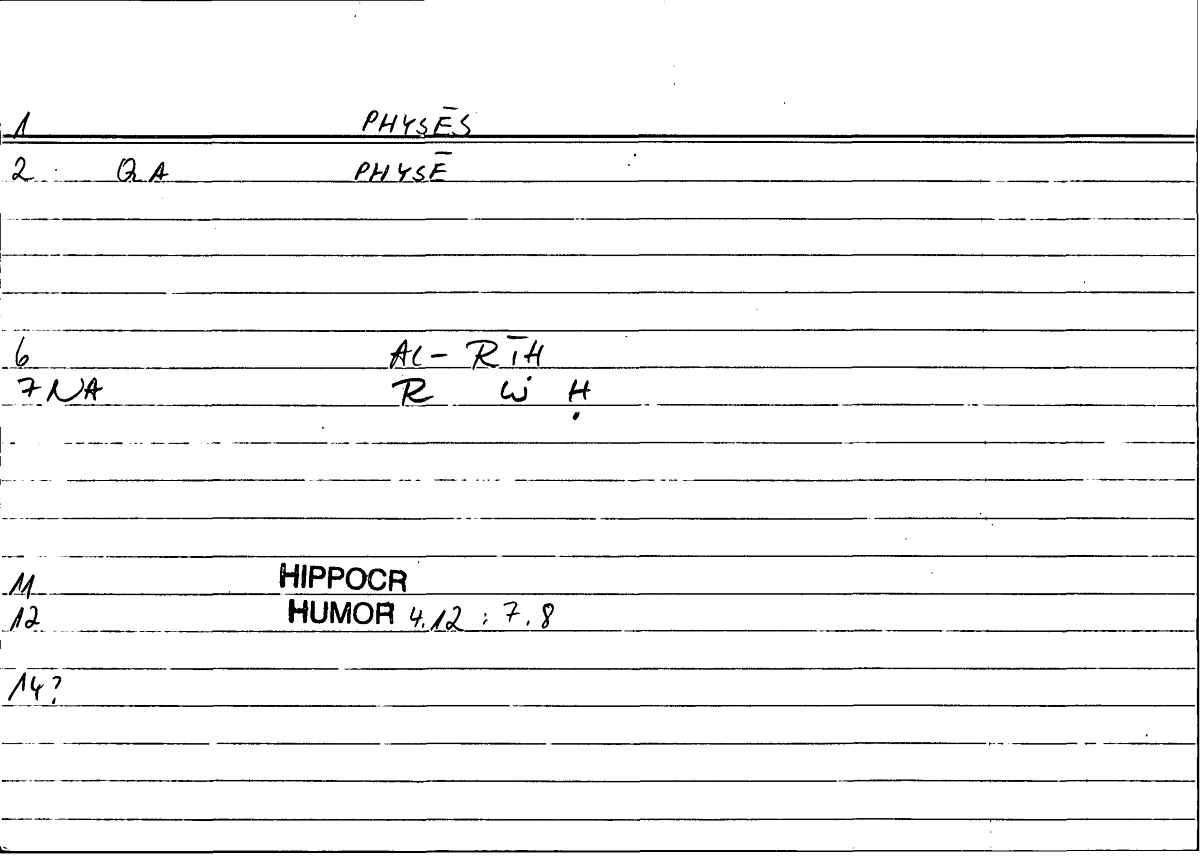 1 PHYSĒS
2 : QA PHYSĒ
6 AL- RĪH
7 NA R Ẇ Ḥ
11 HIPPOCR
12 HUMOR 4.12 : 7.8
14?